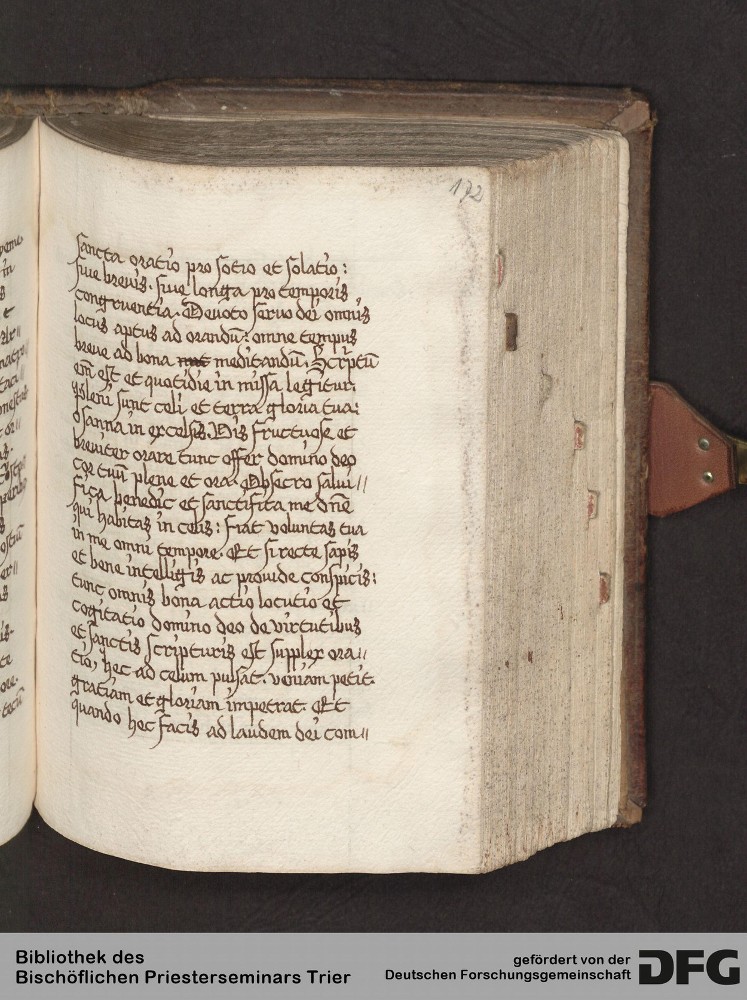 192
sancta oratio pro sotio et solatio:
siue breuis. siue longa pro temporis
congruentia. Deuoto seruo dei omnis
locus aptus ad orandū: omne tempus
breue ad bona meditandū. Scriptū
em̄ est et quotidie in missa legitur.
pleni sunt celi et terra gloria tua:
osanna in excelsis. Vis fructuose et
breuiter orare tunc offer domino deo
cor tuū plene et ora. Obsecro salui//
fica benedic et sanctifita me dn̄e
qui habitas in celis: fiat voluntas tua
in me omni tempore. Et si recte sapis
et bene intelligis ac prouide conspicis:
tunc omnis bona actio locutio et
cogitatio domino deo de virtutibus
et sanctis scripturis est supplex ora//
tio, hec ad celum pulsat. veniam petit.
gratiam et gloriam impetrat. Et
quando hec facis ad laudem dei com//
Bibliothek des
Bischöflichen Priesterseminars Trier
gefördert von der
Deutschen Forschungsgemeinschaft
DFG